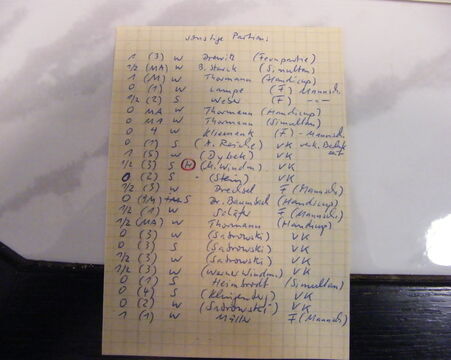 sonstige Partien
1 (3) W Drewitz (Fernpartie)
1/2 (MA) W B. Starck (Simultan)
1 (M) W Thormann (Handicup)
0 (1) W Lampe (F) Mannsch.
1/2 (2) S (F) -"-
0 MA W Thormann (Handicup)
0 MA W Thormann (Simultan)
0 4 W Kliemank (F) - Mannsch
0 (1) S (A. Reiche) VK
1 (5) W (Dybek) VK
1/2 (3) S (H) (M. Windm.) VK
0 (2) S - (Stein) VK
1/2 (3) W Drechsel F (Mannsch)
0 S Dr. Baumbach (Handicup)
1/2 (1) W Schäfer F (Mannsch)
1/2 (MA) W Thormann (Handicup)
0 (3) W (Sabrowski) VK
0 (3) S (Sabrowski) VK
1/2 (3) W (Sabrowski) VK
1/2 (3) W (Werner Windm.) VK
0 (1) S Heimbrodt (Simultan)
0 (4) S (Klingendorf) VK
0 (2) W (Sabrowski) VK
1 (1) W F (Mannsch)